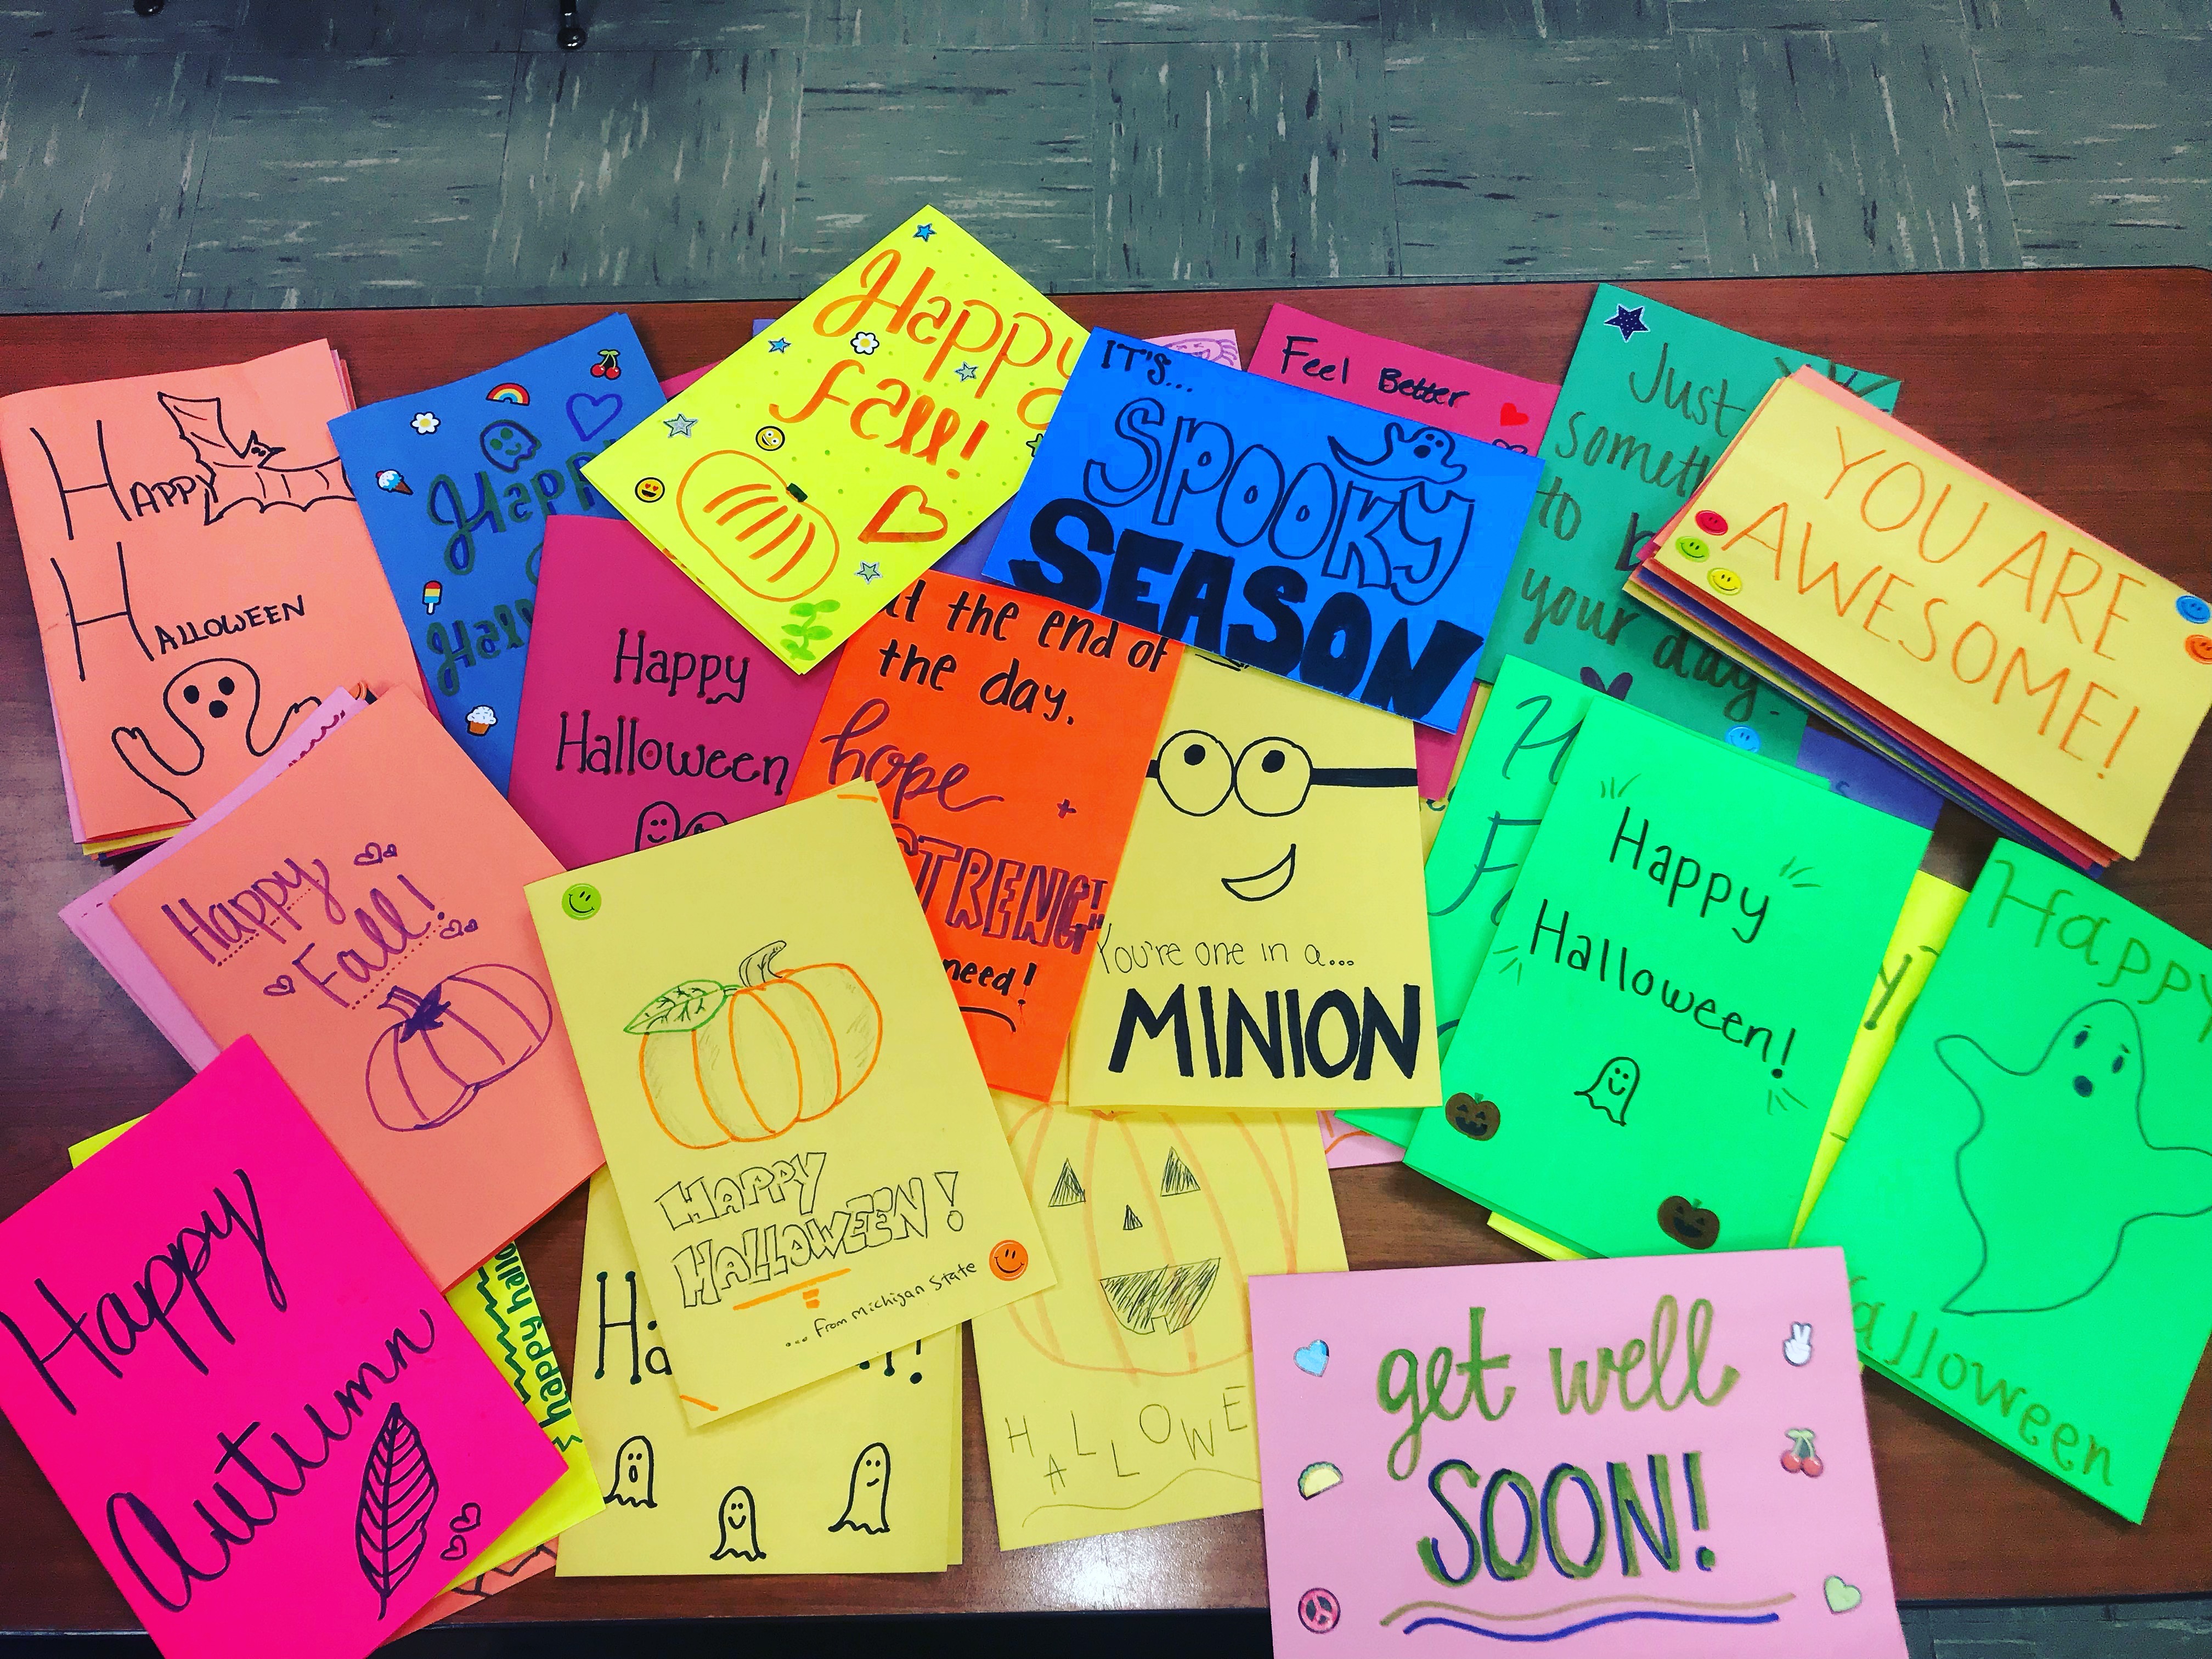 Happy
Halloween
Happ
Hall
Happy
fall!
IT'S...
SPOOKY
SEASON
Feel Better
Just
someth
to b
your day.
YOU ARE
AWESOME!
Happy
Halloween
at the end of
the day,
hope +
STRENGTH
need!
You're one in a...
MINION
H
Fa
Happy
Halloween!
y
Happy
alloween
Happy
Fall!
HAPPY
HALLOWEEN!
... From Michigan State
Happy
Autumn
happy hallo
happy
Ha
!
HALLOWE
get well
SOON!